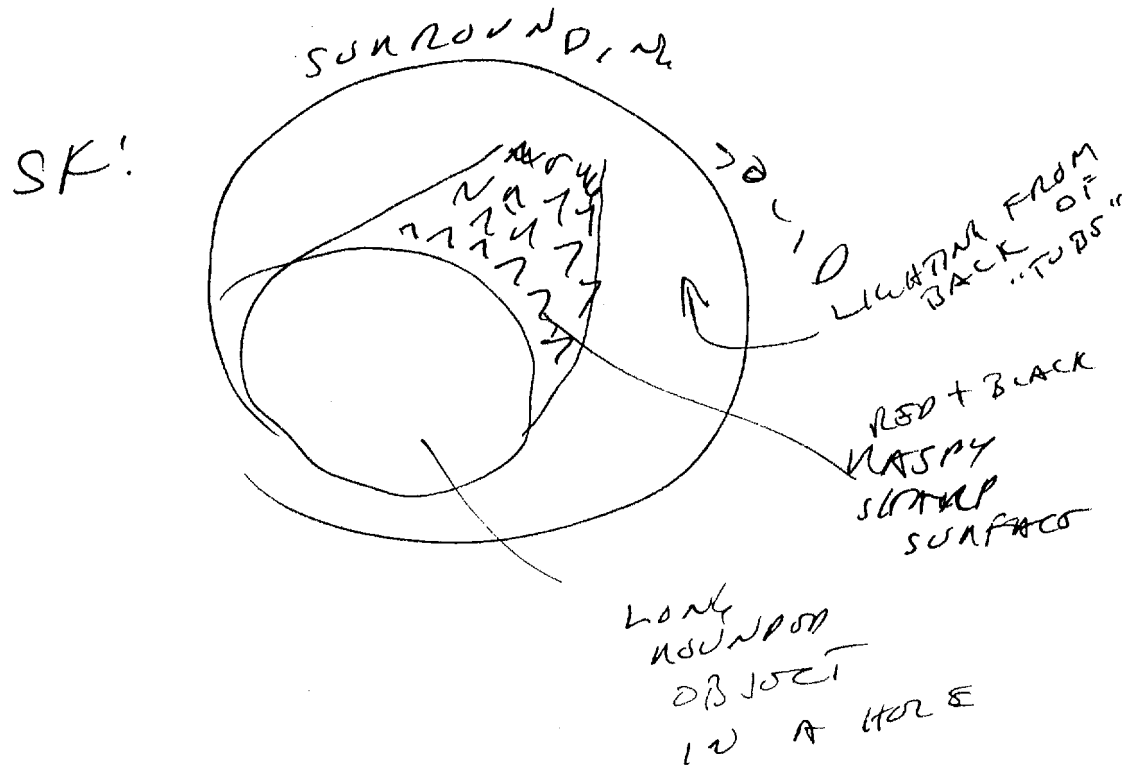 SURROUNDING
SK:
VOID
LIGHTING FROM
BACK OF
"TUBE"
RED + BLACK
RASPY
SHARP
SURFACE
LONG
ROUNDED
OBJECT
IN A HOLE